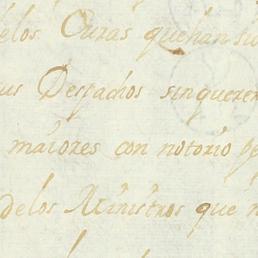 delos Curas que han si
sus Despachos sin querer
maiores con notorio pe
delos Ministros que n